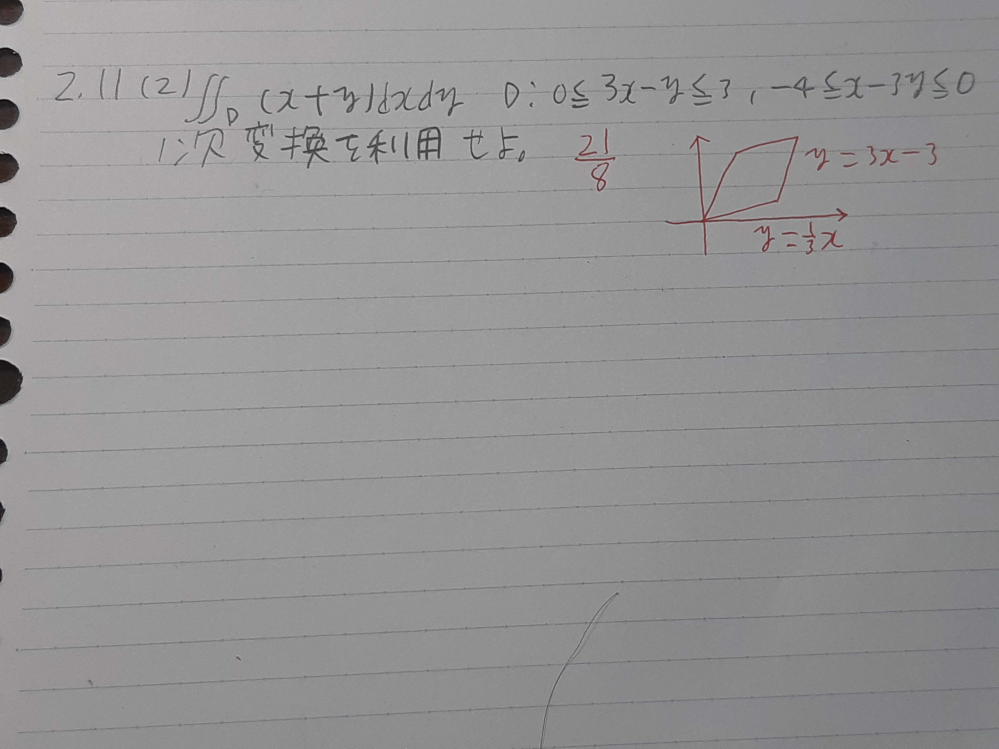 2.11 (2) ∬_D (x+y)dxdy D: 0≦3x-y≦3, -4≦x-3y≦0
1次変換を利用せよ。 21/8
y=3x-3
y=1/3x